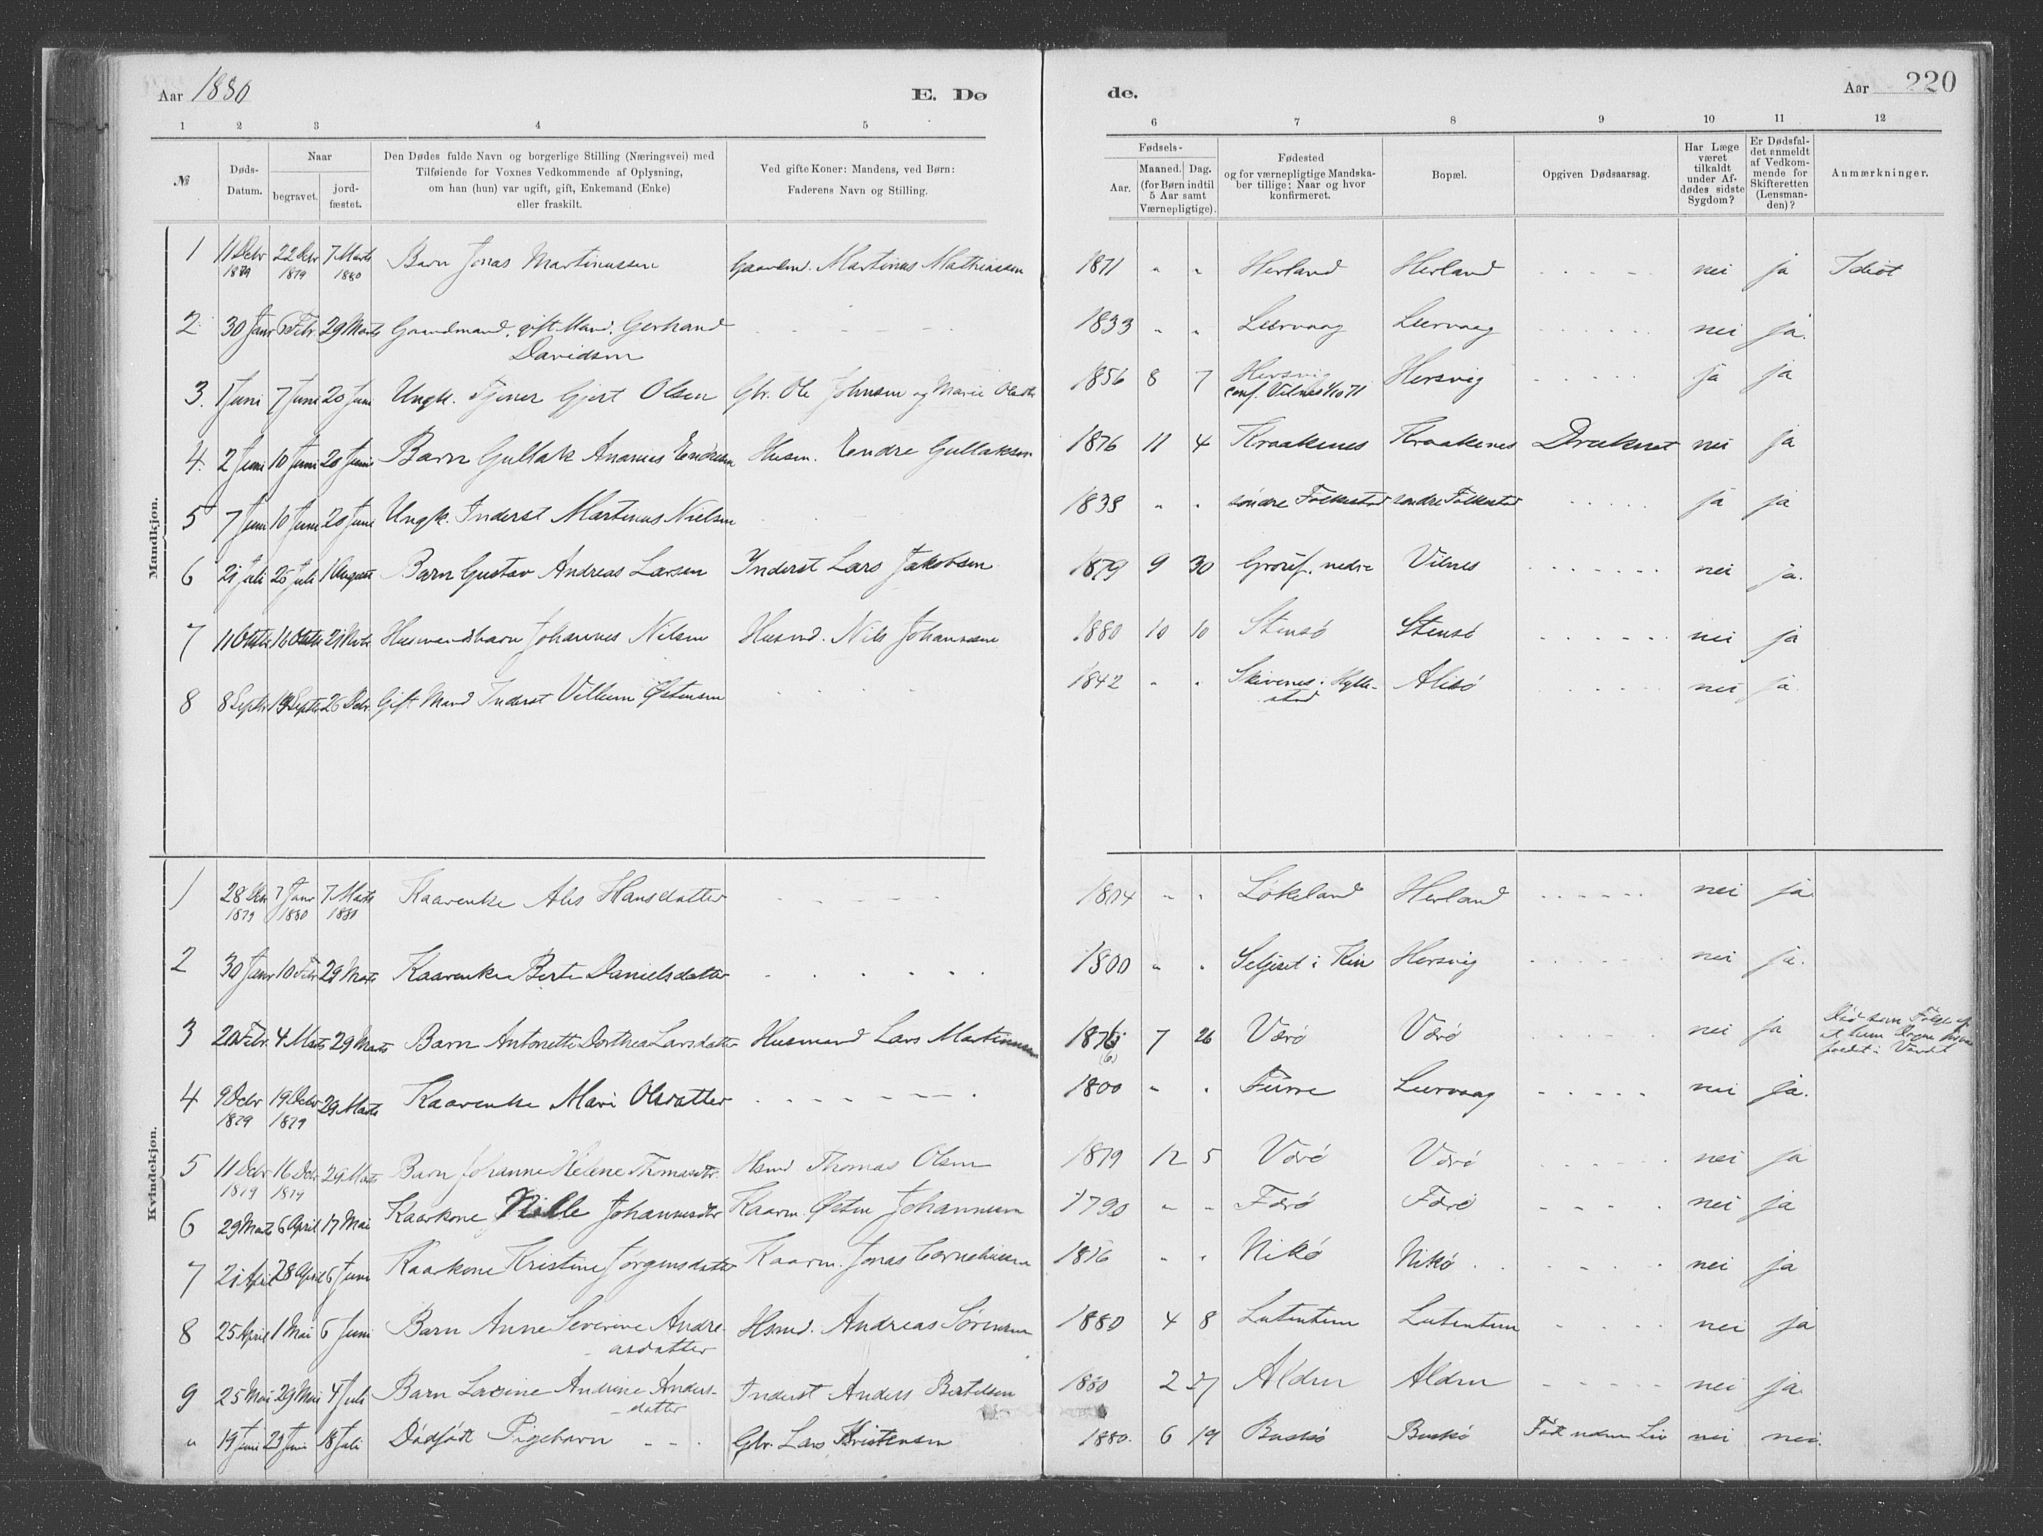 Aar 1880 E. Dø de. Aar 220
1 2 3 4 5 6 7 8 9 10 11 12
№ Døds-Datum. Naar begravet. jordfæstet. Den Dødes fulde Navn og borgerlige Stilling (Næringsvei) med Tilføiende for Voxnes Vedkommende af Oplysning, om han (hun) var ugift, gift, Enkemand (Enke) eller fraskilt. Ved gifte Koner: Mandens, ved Børn: Faderens Navn og Stilling. Fødsels- Aar. Maaned. Dag. (for Børn indtil 5 Aar samt Værnepligtige). Fødested og for værnepligtige Mandskaber tillige: Naar og hvor konfirmeret. Bopæl. Opgiven Dødsaarsag. Har Læge været tilkaldt under Afdødes sidste Sygdom? Er Dødsfaldet anmeldt af Vedkommende for Skifteretten (Lensmanden)? Anmærkninger.
Mandkjøn.
1 11 Decbr 1879 22 Decbr 1879 7 Marts 1880 Barn Jonas Martinussen Gaardmd. Martinus Mathiassen 1871 " " Herland Herland nei ja Idiot
2. 30 Janr 6 Febr 29 Marts Gaardmand, gift Mand, Gerhard Davidsen 1833 " " Leervaag Leervaag nei ja.
3. 1 Juni 7 Juni 20 Juni Ungk. Tjener Gjert Olsen Gbr. Ole Johnsen og Marie Olsdtr 1856 8 7 Hersvig conf. Vilnes 1/10 71 Hersvig ja ja
4. 2 Juni 10 Juni 20 Juni Barn Gullak Ananias Endresen Husm. Endre Gullaksen 1876 11 4 Kraakenes Kraakenes Druknet nei ja
5 7 Juni 10 Juni 20 Juni Ungk. Inderst Martinus Nielsen 1838 " " søndre Folkestad søndre Folkestad ja ja
6 21 Juli 25 Juli 1 August Barn Gustav Andreas Larsen Inderst Lars Jakobsen 1879 9 30 nedre Vilnes nei ja.
7 11 Oktbr 16 Oktbr 21 Husmandsbarn Johannes Nilsen Husmd. Nils Johannesen 1880 10 10 Stensø Stensø nei ja
8 8 Septbr 19 Septbr 26 Decbr Gift Mand Inderst Villum Østensen 1842 " " Skivenes i Hyllestad Alisø nei ja.
Kvindekjøn.
1 28 Decbr 1879 7 Janr 1880 7 Marts 1880 Kaarenke Alis Hansdatter 1804 " " Løkeland Herland nei ja.
2 30 Janr 10 Febr 29 Marts Kaarenke Berte Danielsdatter 1800 " " Seljeset i Kin Hersvig nei ja.
3 20 Febr 4 Marts 29 Marts Barn Antonette Dorthea Larsdatter Husmand Lars Martinussen 1876 (6) 7 26 Værø Værø nei ja Død som Følge af at hun Dagene faldt i Vandet
4 9 Decbr 1879 19 Decbr 1879 29 Marts Kaarenke Mari Olsdatter 1800 " " Furre Leervaag nei ja.
5 11 Decbr 1879 16 Decbr 1879 29 Marts Barn Johanne Helene Thomasdtr. Hsmd Thomas Olsen 1879 12 5 Værø Værø nei ja
6 29 Marts 6 April 17 Mai Kaarkone Nille Johannesdtr Kaarm. Østen Johannesen 1790 " " Færø Færø nei ja
7 21 April 28 April 6 Juni Kaarkone Kristine Jørgensdatter Kaarm. Jonas Corneliussen 1816 " " Nikø Nikø nei ja
8 25 April 1 Mai 6 Juni Barn Anne Severine Andreasdatter Hsmd. Andreas Sørensen 1880 4 8 Lutentun Lutentun nei ja
9 25 Mai 29 Mai 4 Juli Barn Lavine Andrine Andersdatter Inderst Anders Bertelsen 1880 2 27 Alden Alden nei ja.
" 19 Juni 23 Juni 18 Juli Dødfødt Pigebarn Gbr. Lars Kristensen 1880. 6 19 Buskø Buskø Født uden Liv nei nei.